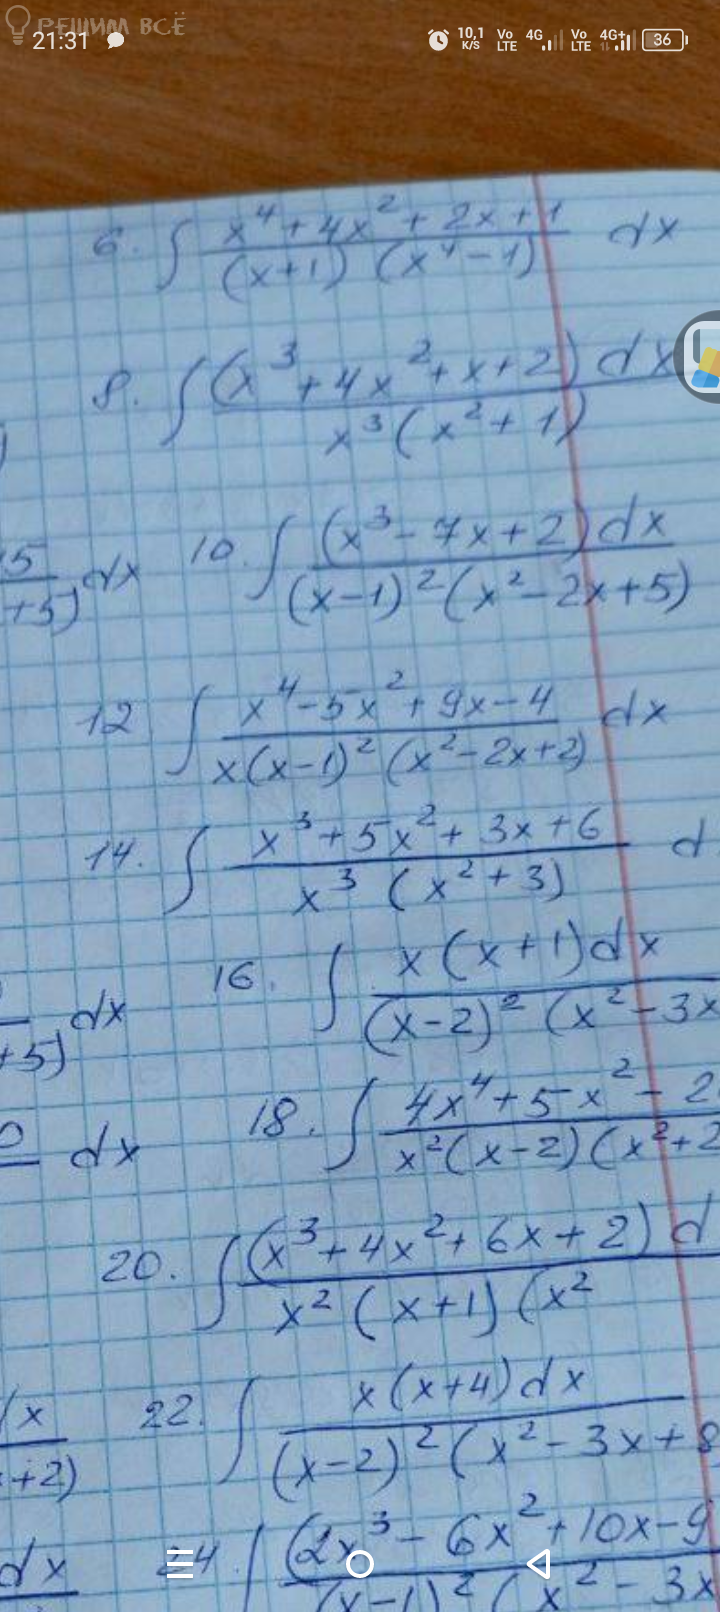 РЕШИМ ВСЁ
21:31 10,1 K/S Vo LTE 4G Vo LTE 4G+ 36
6. ∫ (x⁴+4x²+2x+1)/((x+1)(x⁴-1)) dx
8. ∫ (x³+4x²+x+2)dx/(x³(x²+1))
5/+5) dx 10. ∫ (x³-7x+2)dx/((x-1)²(x²-2x+5))
12 ∫ (x⁴-5x²+9x-4)/(x(x-1)²(x²-2x+2)) dx
14. ∫ (x³+5x²+3x+6)/(x³(x²+3)) d
+5) dx 16. ∫ x(x+1)dx/((x-2)²(x²-3x
0 dx 18. ∫ 4x⁴+5x²-2/x²(x-2)(x²+2
20. ∫ (x³+4x²+6x+2)d/x²(x+1)(x²
x/+2) 22. ∫ x(x+4)dx/(x-2)²(x²-3x+8
dx 24. ∫ (2x³-6x²+10x-9/(x-1)²(x²-3x